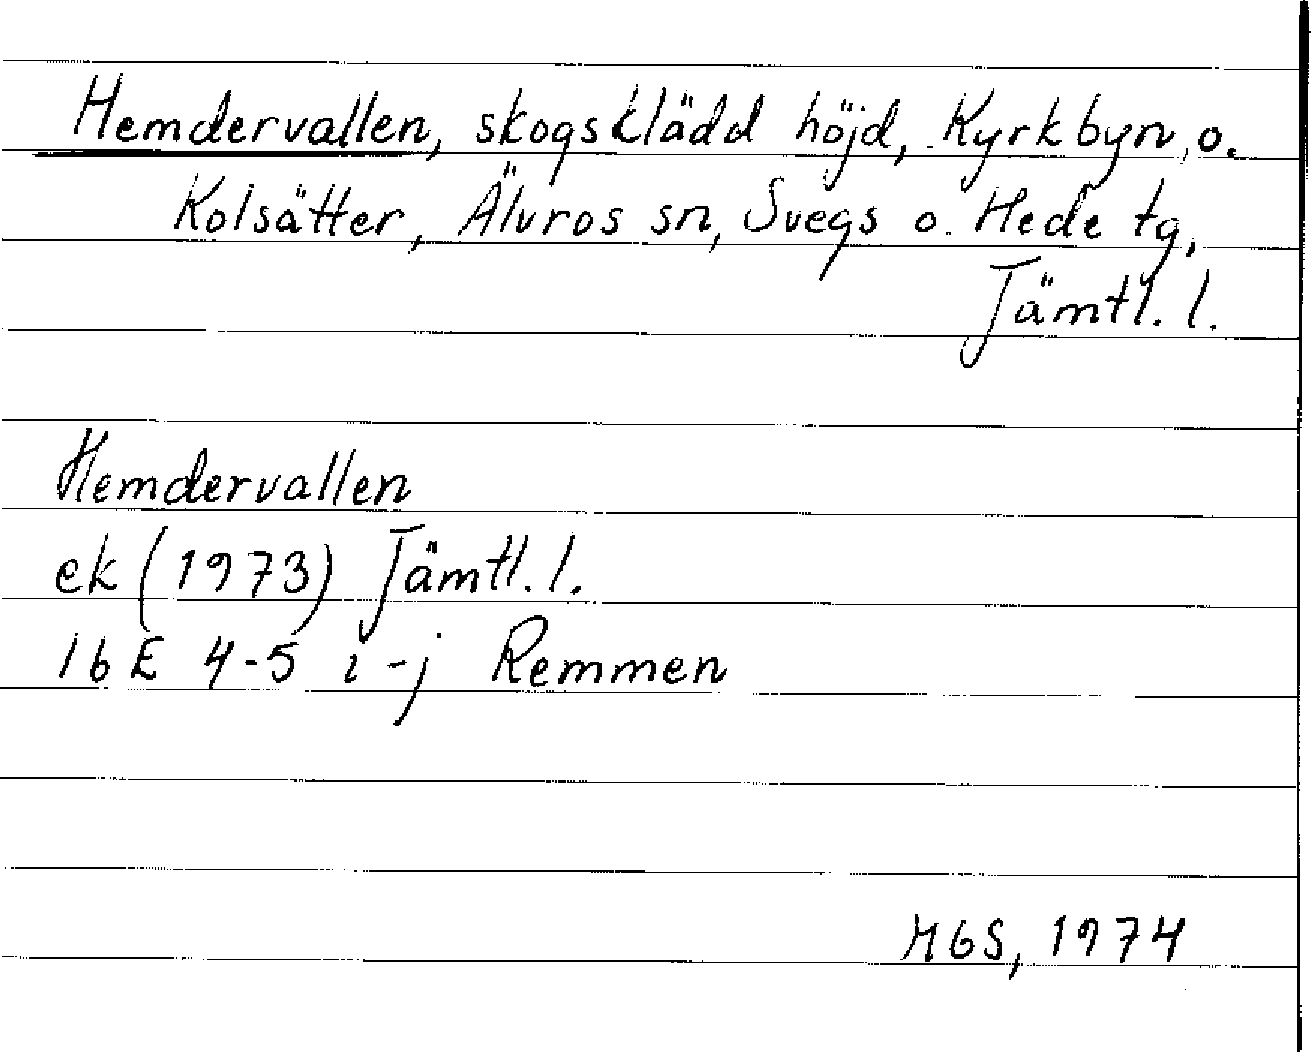 Hemdervallen, skogsklädd höjd, Kyrkbyn, o.
Kolsätter, Älvros sn, Svegs o. Hede tg,
Jämtl. l.
Hemdervallen
ek (1973) Jämtl. l.
16E 4-5 i-j Remmen
MGS, 1974